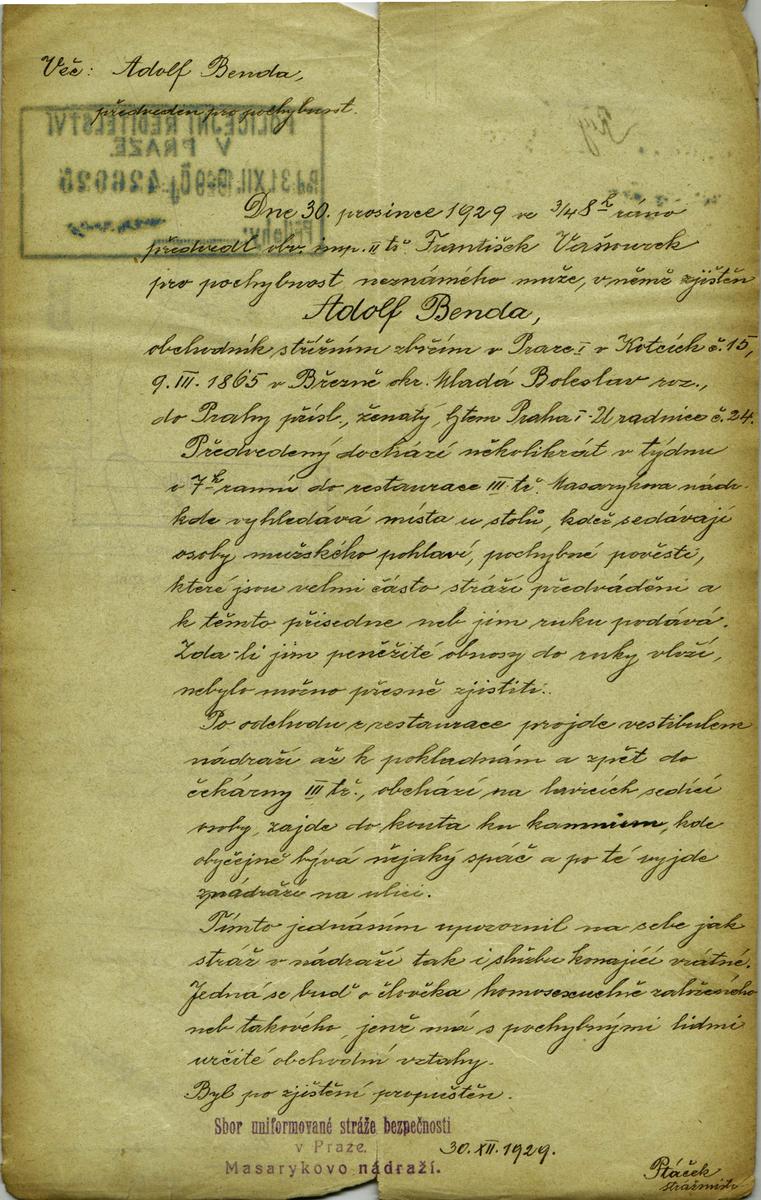 Věc: Adolf Benda,
předveden pro pochybnost.
POLICEJNÍ ŘEDITELSTVÍ
V PRAZE.
31.XII.
Přílohy:
Dne 30. prosince 1929 ve 3/4 8 h ráno
předvedl obv. insp. II tř. František
pro pochybnost neznámého muže, v němž zjištěn
Adolf Benda,
obchodník střižním zbožím v Praze I v Kotcích č. 15,
9. III. 1865 v Březně okr. Mladá Boleslav roz.,
do Prahy přísl., ženatý, bytem Praha I U radnice č. 24.
Předvedený dochází několikrát v týdnu
v 7 h ranní do restaurace III. tř. Masarykova nádr.
kde vyhledává místa u stolů, kdež sedávají
osoby mužského pohlaví, pochybné pověsti,
které jsou velmi často stráží předváděni a
k těmto přisedne neb jim ruku podává.
Zda-li jim peněžité obnosy do ruky vloží,
nebylo možno přesně zjistiti.
Po odchodu z restaurace projde vestibulem
nádraží až k pokladnám a zpět do
čekárny III tř., obchází na lavicích sedící
osoby, zajde do kouta ku kamnům, kde
obyčejně bývá nějaký spáč a po té vyjde
z nádraží na ulici.
Tímto jednáním upozornil na sebe jak
stráž v nádraží tak i službu konající vrátné.
Jedná se buď o člověka homosexuelně založeného
neb takového, jenž má s pochybnými lidmi
určité obchodní vztahy.
Byl po zjištění propuštěn.
Sbor uniformované stráže bezpečnosti
v Praze.
Masarykovo nádraží.
30. XII. 1929.
Ptáček
strážmistr